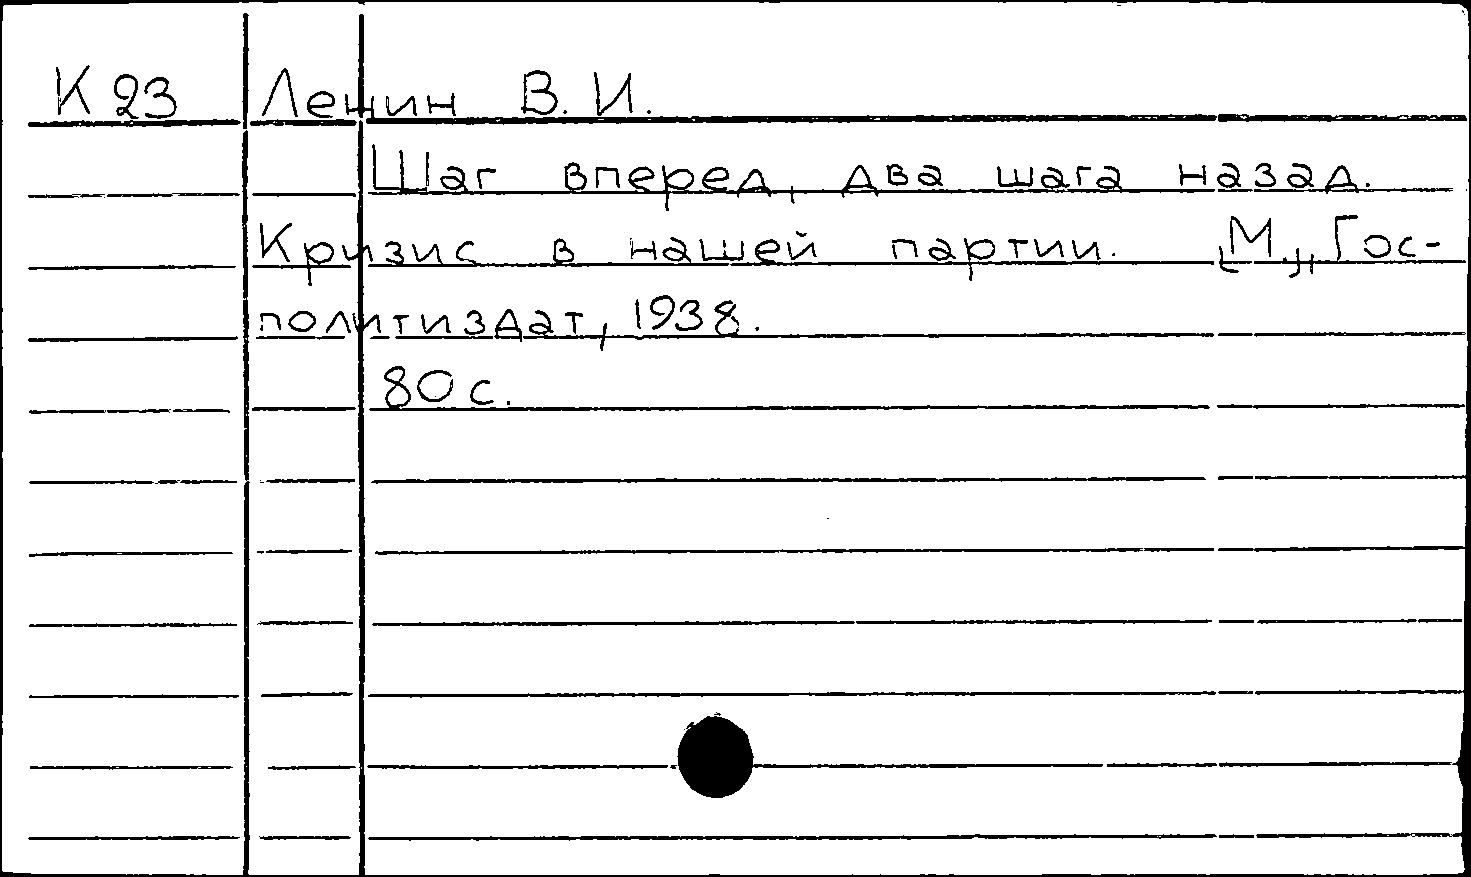 К 23 Ленин В. И.
Шаг вперед, два шага назад.
Кризис в нашей партии. [М.], Гос-
политиздат, 1938.
80 с.